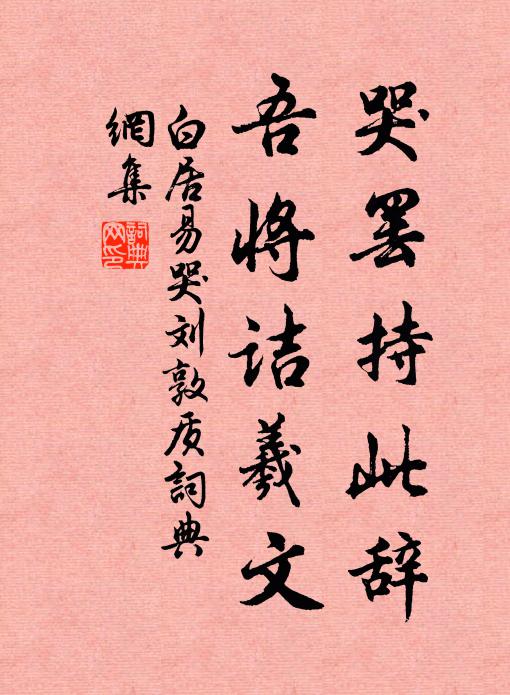 哭罢持此辞
吾将诘羲文
白居易哭刘敦质詞典
網集
詞典
网印